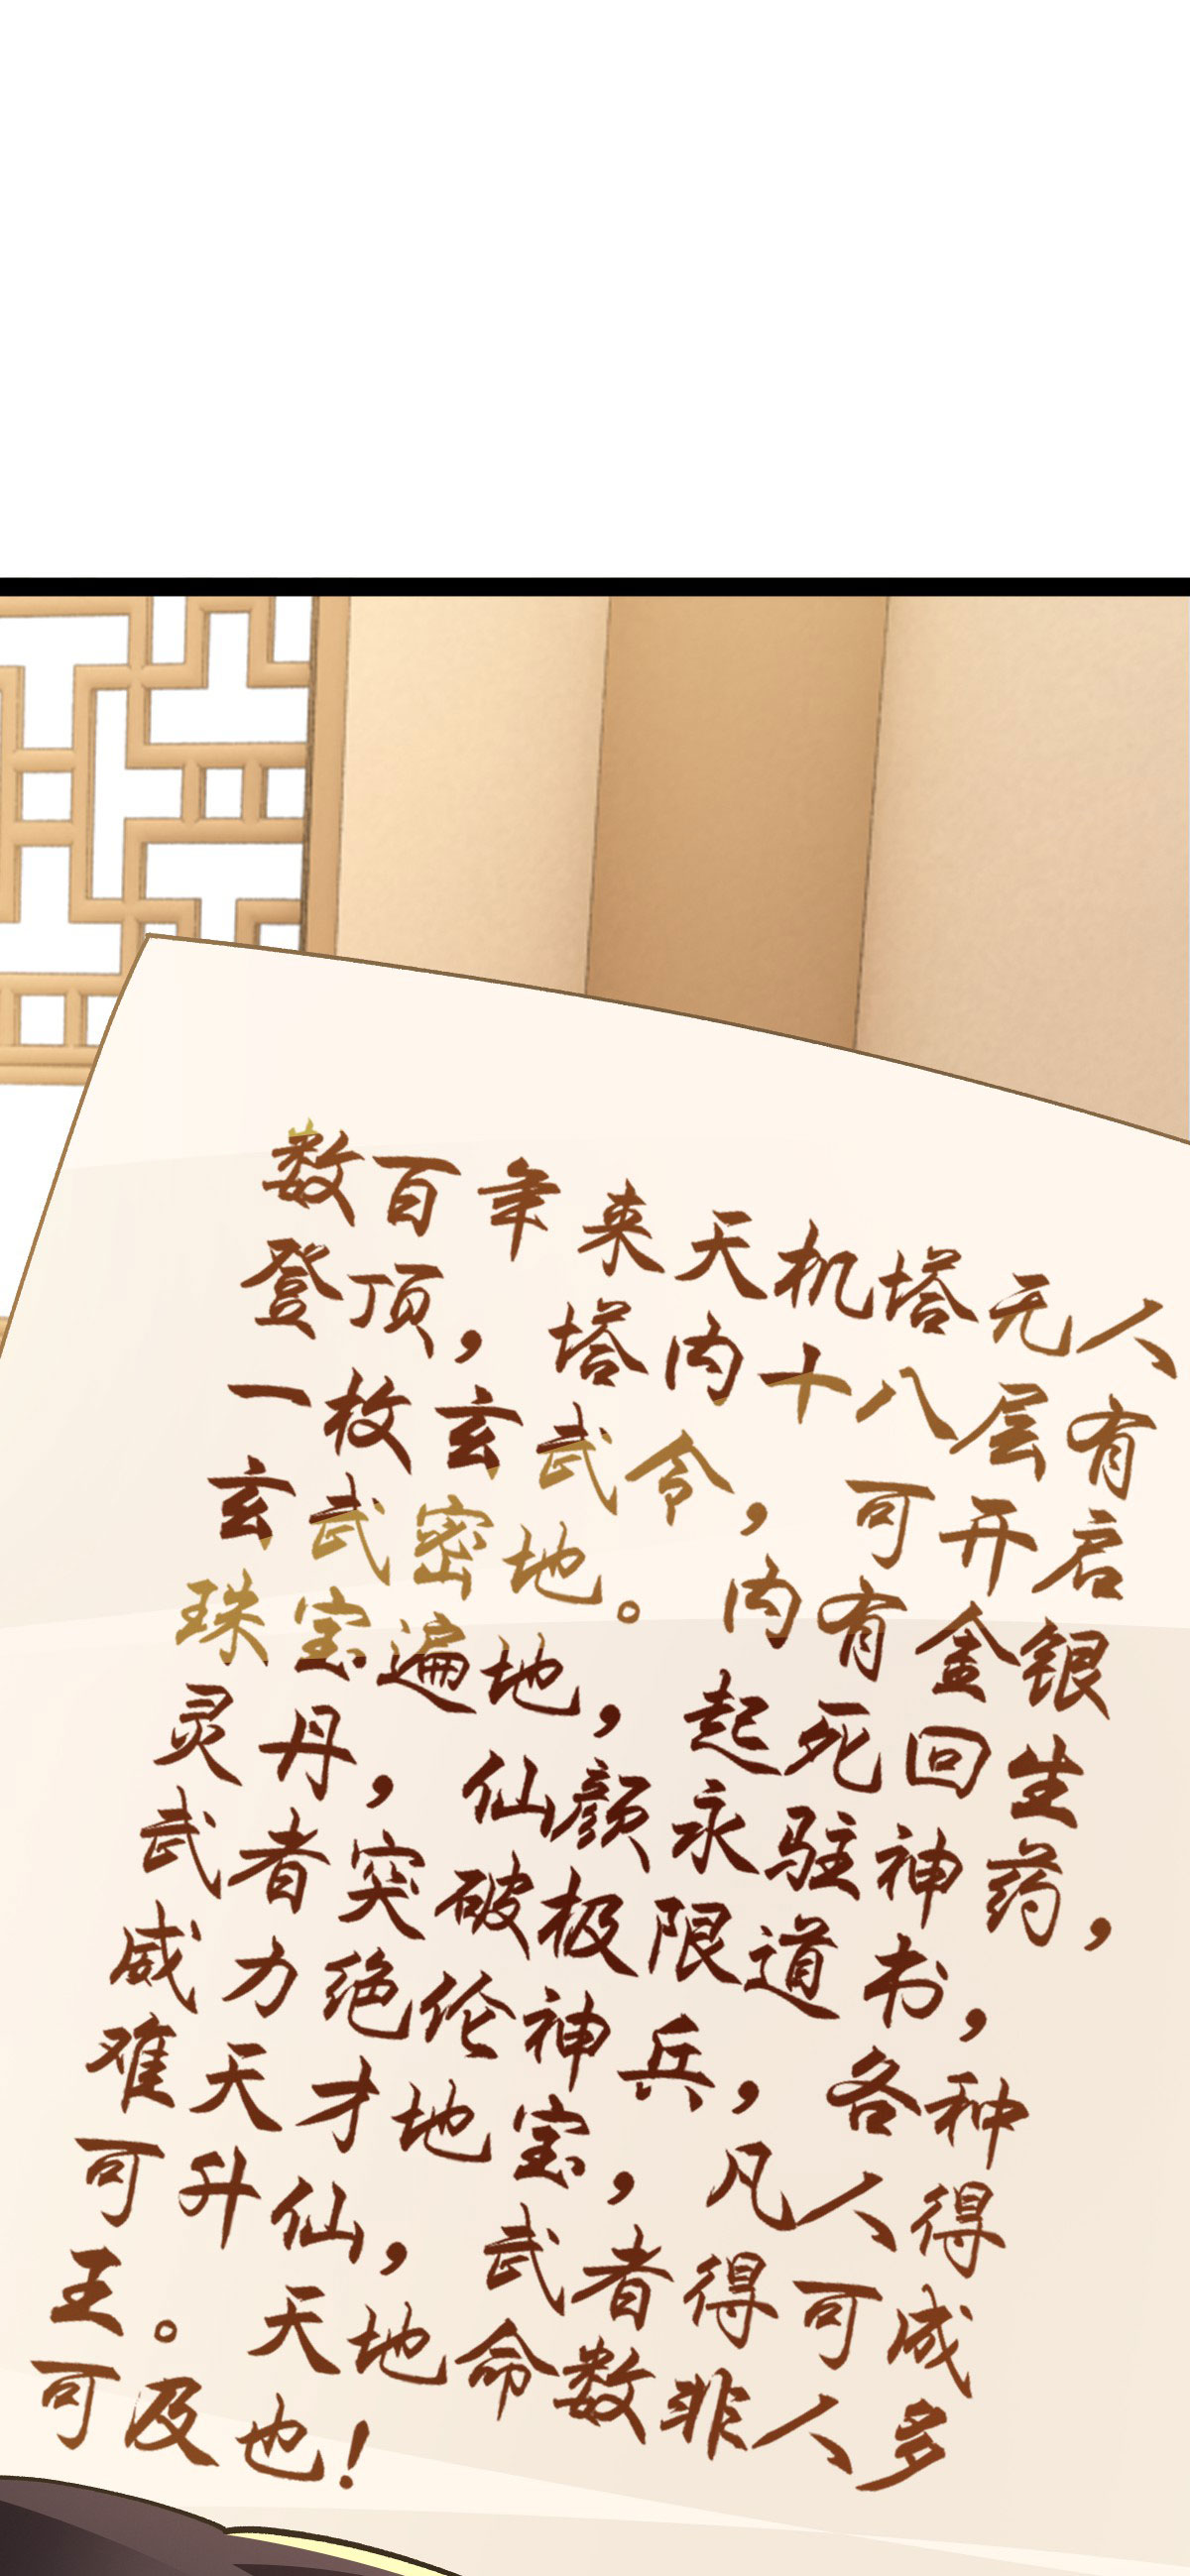 数百年来天机塔无人
登顶，塔内十八层有
一枚玄武令，可开启
玄武密地。内有金银
珠宝遍地，起死回生
灵丹，仙颜永驻神药，
武者突破极限道书，
威力绝伦神兵，各种
难天才地宝，凡人得
可升仙，武者得可成
王。天地命数非人多
可及也！